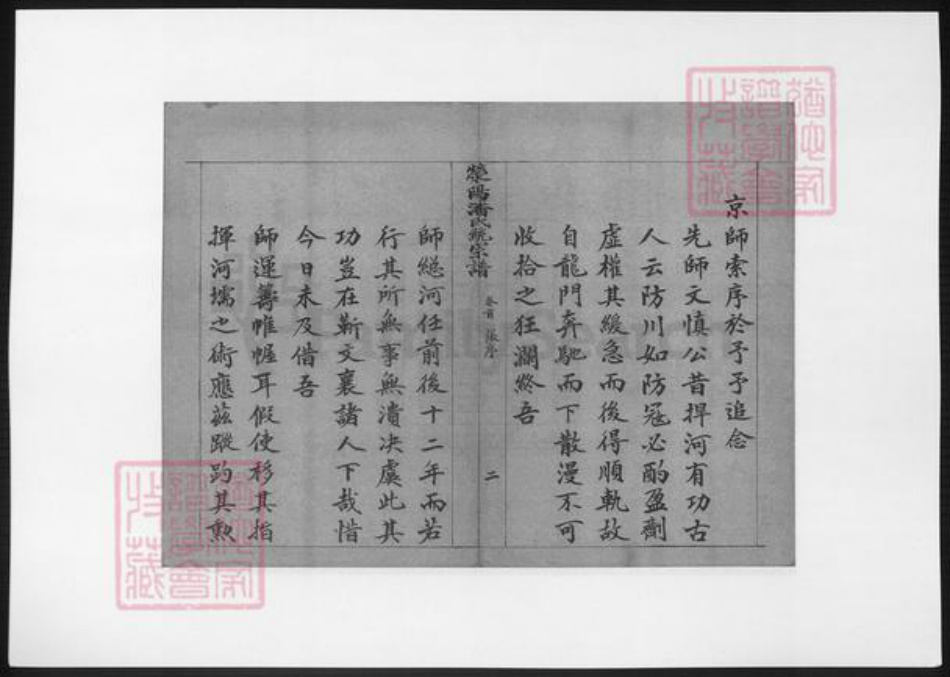 京師索序於予予追念
先師文慎公昔捍河有功古
人云防川如防冦必酌盈劑
虛權其緩急而後得順軌故
自龍門奔馳而下散漫不可
收拾之狂瀾終吾
滎陽潘氏統宗譜
卷首 張序
二
師總河任前後十二年而若
行其所無事無潰决虞此其
功豈在靳文襄諸人下哉惜
今日未及借吾
師運籌帷幄耳假使移其指
揮河壖之術應茲蹤趵其勲
譜學會
收藏
譜學會
收藏